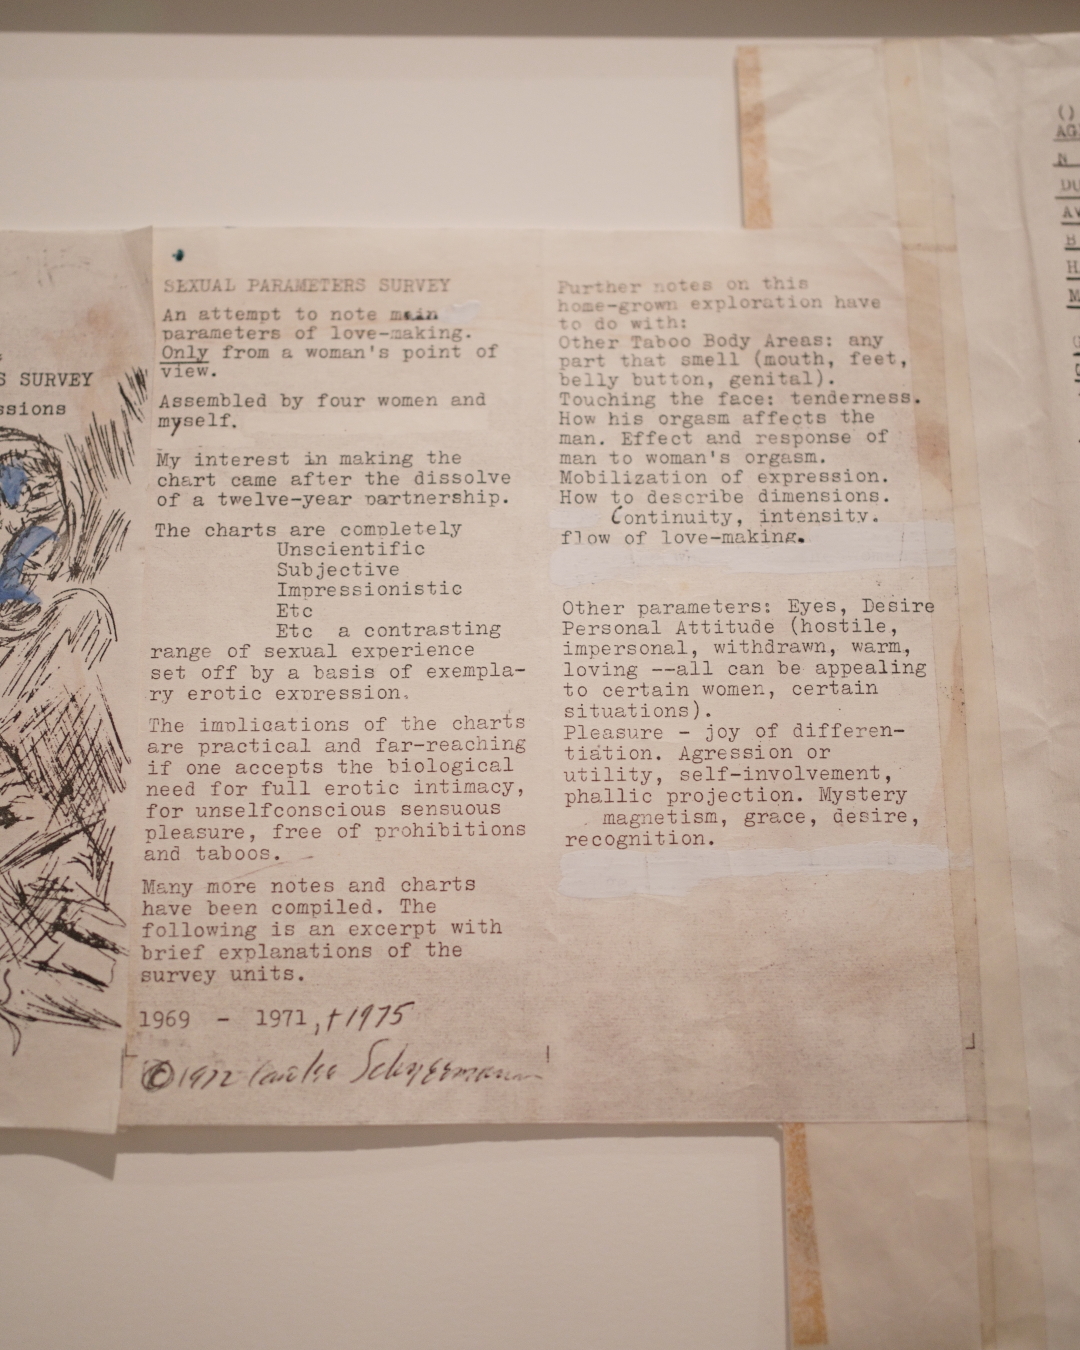 S SURVEY
ssions
SEXUAL PARAMETERS SURVEY
An attempt to note main
parameters of love-making.
Only from a woman's point of
view.
Assembled by four women and
myself.
My interest in making the
chart came after the dissolve
of a twelve-year partnership.
The charts are completely
Unscientific
Subjective
Impressionistic
Etc
Etc a contrasting
range of sexual experience
set off by a basis of exempla-
ry erotic expression.
The implications of the charts
are practical and far-reaching
if one accepts the biological
need for full erotic intimacy,
for unselfconscious sensuous
pleasure, free of prohibitions
and taboos.
Many more notes and charts
have been compiled. The
following is an excerpt with
brief explanations of the
survey units.
1969 - 1971, + 1975
© 1972 Carolee Schneemann
Further notes on this
home-grown exploration have
to do with:
Other Taboo Body Areas: any
part that smell (mouth, feet,
belly button, genital).
Touching the face: tenderness.
How his orgasm affects the
man. Effect and response of
man to woman's orgasm.
Mobilization of expression.
How to describe dimensions.
Continuity, intensity.
flow of love-making.
Other parameters: Eyes, Desire
Personal Attitude (hostile,
impersonal, withdrawn, warm,
loving --all can be appealing
to certain women, certain
situations).
Pleasure - joy of differen-
tiation. Agression or
utility, self-involvement,
phallic projection. Mystery
magnetism, grace, desire,
recognition.
()
AG
N
DU
AV
B
H
M